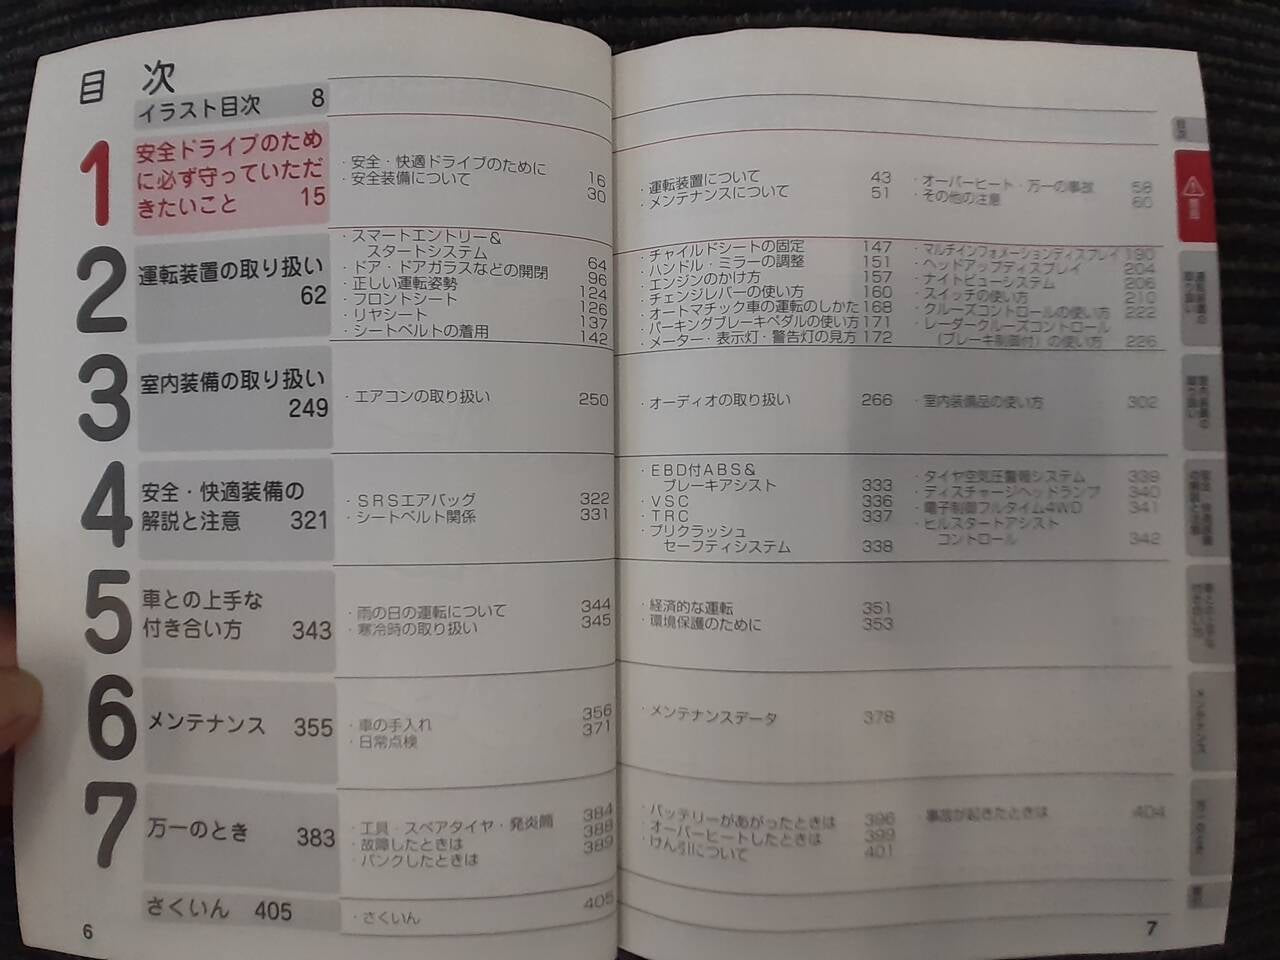 目 次
イラスト目次 8
1
安全ドライブのため
に必ず守っていただ
きたいこと 15
・安全・快適ドライブのために 16
・安全装備について 30
・運転装置について 43
・メンテナンスについて 51
・オーバーヒート・万一の事故 58
・その他の注意 60
2
運転装置の取り扱い
62
・スマートエントリー＆
スタートシステム 64
・ドア・ドアガラスなどの開閉 96
・正しい運転姿勢 124
・フロントシート 126
・リヤシート 137
・シートベルトの着用 142
・チャイルドシートの固定 147
・ハンドル・ミラーの調整 151
・エンジンのかけ方 157
・チェンジレバーの使い方 160
・オートマチック車の運転のしかた 168
・パーキングブレーキペダルの使い方 171
・メーター・表示灯・警告灯の見方 172
・マルチインフォメーションディスプレイ 190
・ヘッドアップディスプレイ 204
・ナイトビューシステム 206
・スイッチの使い方 210
・クルーズコントロールの使い方 222
・レーダークルーズコントロール
（ブレーキ制御付）の使い方 226
3
室内装備の取り扱い
249
・エアコンの取り扱い 250
・オーディオの取り扱い 266
・室内装備品の使い方 302
4
安全・快適装備の
解説と注意 321
・ＳＲＳエアバッグ 322
・シートベルト関係 331
・ＥＢＤ付ＡＢＳ＆
ブレーキアシスト 333
・ＶＳＣ 336
・ＴＲＣ 337
・プリクラッシュ
セーフティシステム 338
・タイヤ空気圧警報システム 339
・ディスチャージヘッドランプ 340
・電子制御フルタイム4WD 341
・ヒルスタートアシスト
コントロール 342
5
車との上手な
付き合い方 343
・雨の日の運転について 344
・寒冷時の取り扱い 345
・経済的な運転 351
・環境保護のために 353
6
メンテナンス 355
・車の手入れ 356
・日常点検 371
・メンテナンスデータ 378
7
万一のとき 383
・工具・スペアタイヤ・発炎筒 384
・故障したときは 388
・パンクしたときは 389
・バッテリーがあがったときは 396
・オーバーヒートしたときは 399
・けん引について 401
・事故が起きたときは 404
さくいん 405
・さくいん 405
6
7
目次
メンテナンス
万一のとき